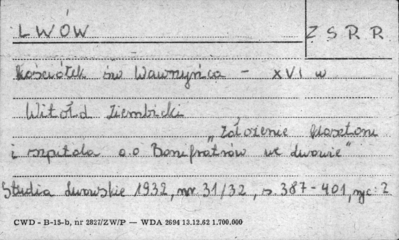 LWÓW
Z S R R
Kościółek św Wawrzyńca - XVI w
Witold Ziembicki
"Założenie klasztoru
i szpitala o.o Bonifratrów we Lwowie"
Studia Lwowskie 1932, nr. 31/32, s. 387-401, ryc: 2
CWD - B-15-b, nr 2827/ZW/P — WDA 2694 13.12.62 1.700.000